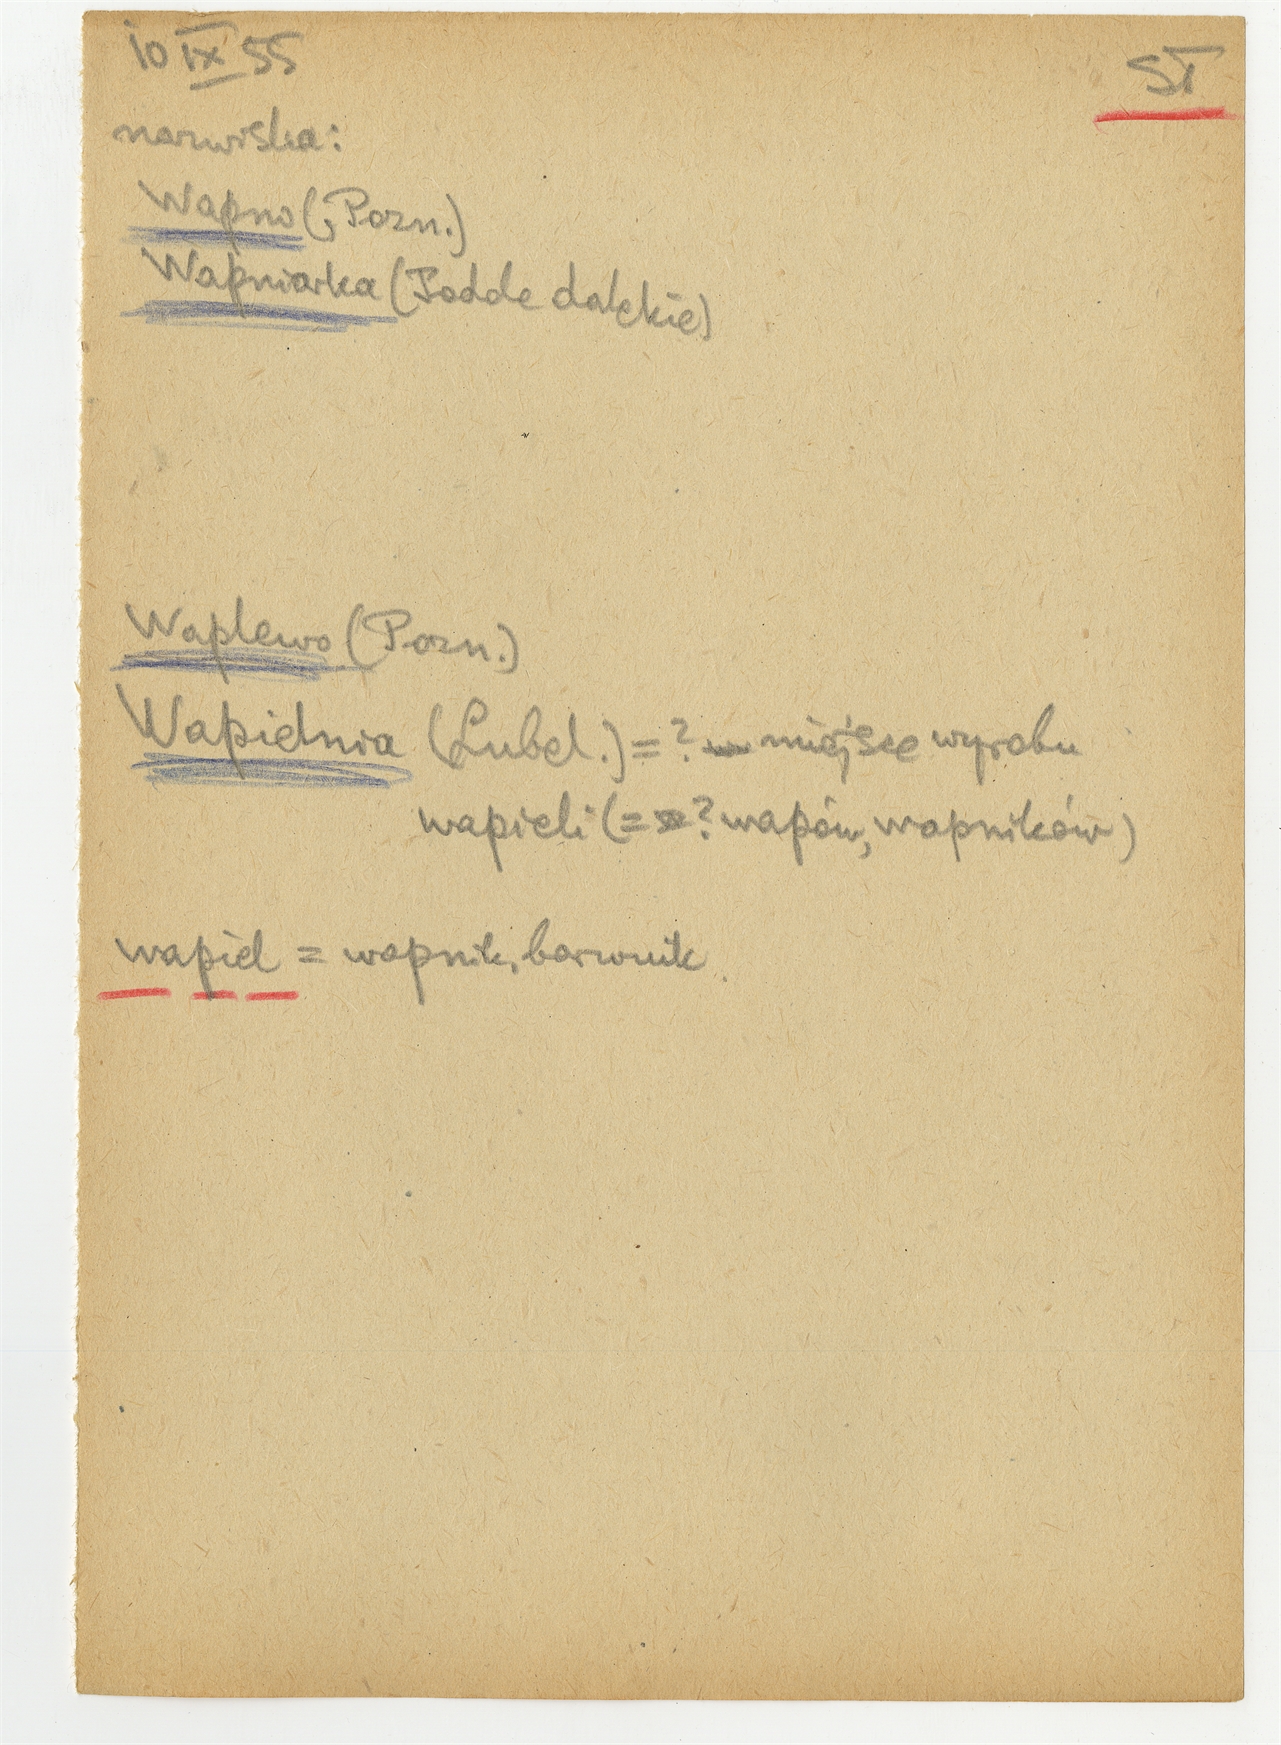 10 IX 55
ST
nazwiska:
Wapno (, Pozn.)
Wapniarka (Podole dalekie)
Waplewo (Pozn.)
Wapielnia (Lubel.) = ? miejsce wyrobu
wapieli (= ? wapów, wapników)
wapiel = wapnik, barwnik